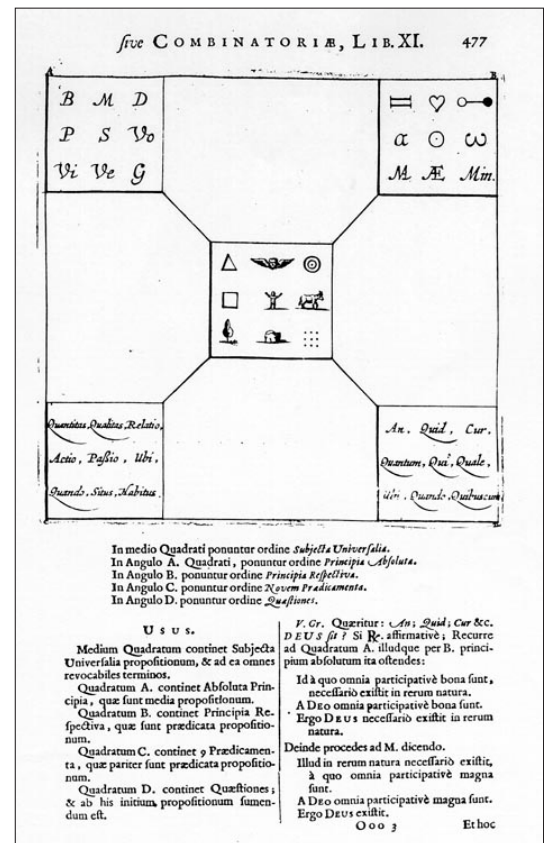 sive COMBINATORIÆ, LIB. XI. 477
A B
B M D
P S Vo
Vi Ve G
α ω
M Æ Min.
Quantitas, Qualitas, Relatio,
Actio, Passio, Ubi,
Quando, Situs, Habitus.
An, Quid, Cur,
Quantum, Qui? Quale,
Ubi, Quando, Quibuscum
In medio Quadrati ponuntur ordine Subjecta Universalia.
In Angulo A. Quadrati, ponuntur ordine Principia Absoluta.
In Angulo B. ponuntur ordine Principia Respectiva.
In Angulo C. ponuntur ordine Novem Prædicamenta.
In Angulo D. ponuntur ordine Quæstiones.
USUS.
Medium Quadratum continet Subjecta
Universalia propositionum, & ad ea omnes
revocabiles terminos.
Quadratum A. continet Absoluta Prin-
cipia, quæ sunt media propositionum.
Quadratum B. continet Principia Re-
spectiva, quæ sunt prædicata propositio-
num.
Quadratum C. continet 9 Prædicamen-
ta, quæ pariter sunt prædicata propositio-
num.
Quadratum D. continet Quæstiones;
& ab his initium propositionum sumen-
dum est.
V. Gr. Quæritur: An; Quid; Cur &c.
DEUS sit? Si ℞. affirmativè; Recurre
ad Quadratum A. illudque per B. princi-
pium absolutum ita ostendes:
Id à quo omnia participativè bona sunt,
necessariò existit in rerum natura.
A DEO omnia participativè bona sunt.
Ergo DEUS necessariò existit in rerum
natura.
Deinde procedes ad M. dicendo.
Illud in rerum natura necessariò existit,
à quo omnia participativè magna
sunt.
A DEO omnia participativè magna sunt.
Ergo DEUS existit.
Ooo 3 Et hoc